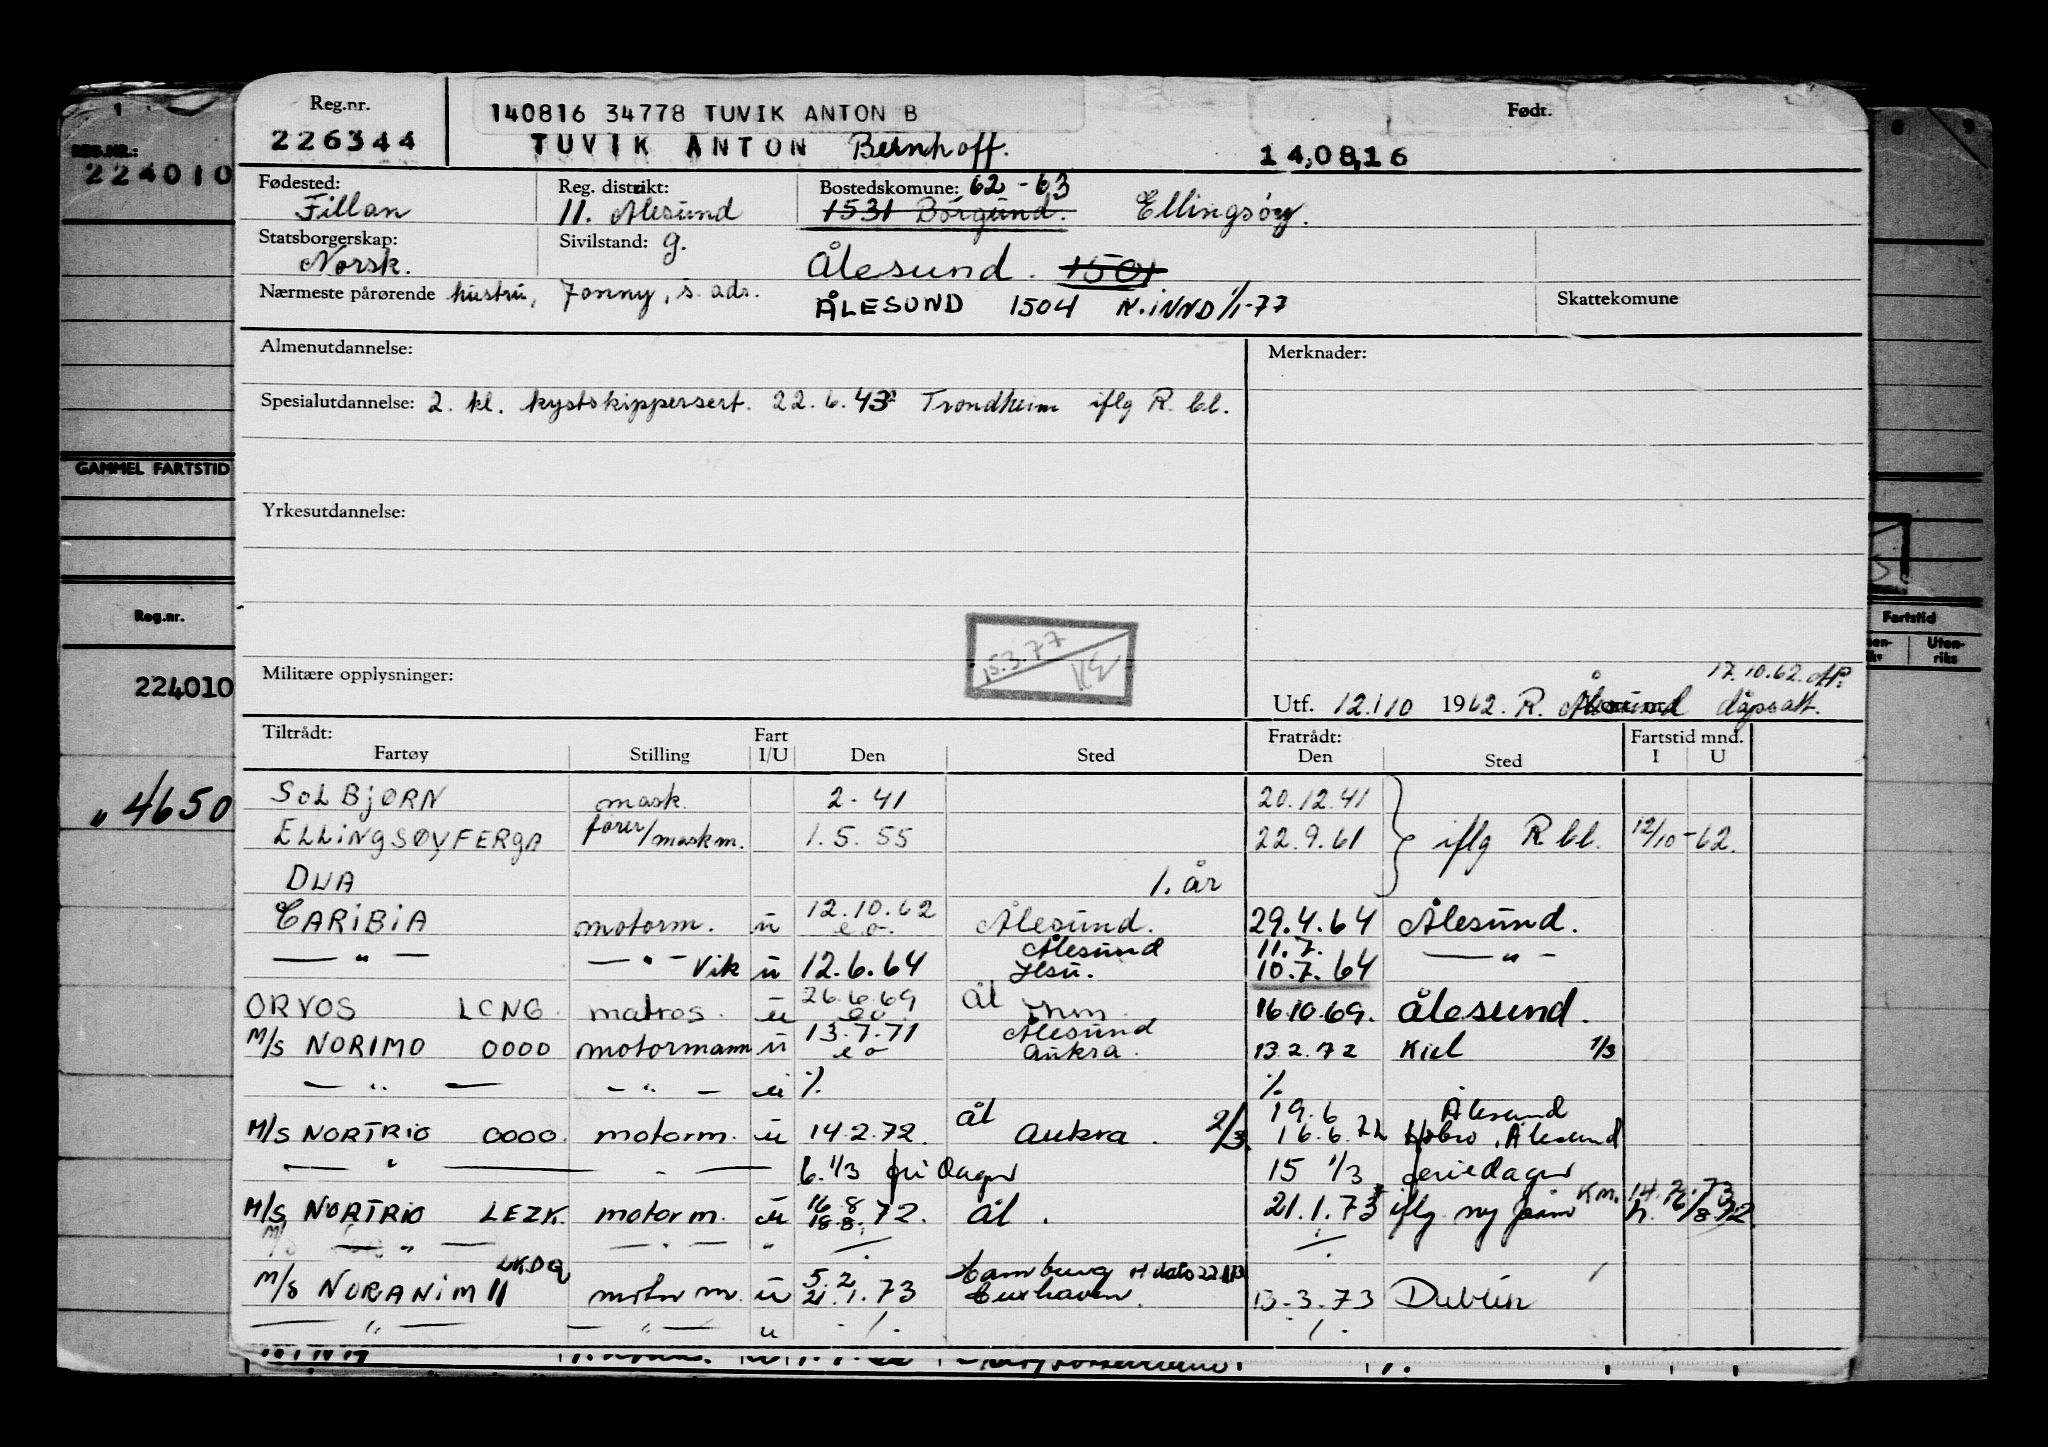 Reg.nr. 140816 34778 TUVIK ANTON B Født.
226344 TUVIK ANTON Bernhoff. 14,08,16
REG.NR.:
224010
Fødested: Reg. distrikt: Bostedskomune: 62-63
Fillan 11. Ålesund 1531 Borgund. Ellingsøy.
Statsborgerskap: Sivilstand: g.
Norsk. Ålesund. 1501
Nærmeste pårørende hustru, Jonny, s. adr. ÅLESUND 1504 N.INND 1/1-77 Skattekomune
Almenutdannelse: Merknader:
Spesialutdannelse: 2. kl. kystskippersert. 22.6.43 Trondheim iflg R. bl.
GAMMEL FARTSTID
Yrkesutdannelse:
Reg.nr.
Fartstid
Uten-
riks
15.3.77
224010
Militære opplysninger:
17.10.62.
Utf. 12.1/10 1962. R. Ålesund
Tiltrådt: Fart Fratrådt: Fartstid mnd.
Fartøy Stilling I/U Den Sted Den Sted I U
4650
SOLBJØRN mask. 2-41 20.12.41
ELLINGSØYFERGA fører/maskm. 1.5.55 22.9.61 iflg R bl. 12/10-62.
DUA 1. år
CARIBIA motorm. u 12.10.62 Ålesund. 29.4.64 Ålesund.
e o.
— " — — " — Vik u 12.6.64 Ålesund 11.7. — " —
10.7.64
ORVOS LCNG matros. u 26.6.69 Ål 16.10.69. Ålesund.
M/S NORIMO 0000 motormann u 13.7.71 Ålesund
e o Aukra. 13.2.72 Kiel 1/3
— " — — " — u ./. ./.
19.6 Ålesund
M/S NORTRIO 0000. motorm. u 14.2.72. Ål Aukra. 2/3 16.6.72 Hobro, Ålesund
— " — — " — 6. 1/3 fridager 15 1/3 feriedager
M/S NORTRIO LEZK. motorm. u 16.8 Ål. 21.1.73 iflg ny
18.8.72.
— " — — " — " ./. ./.
M/S NORANIM II LKDQ motorm. u 5.2 Hamburg
21.1.73 Cuxhaven. 13.3.73 Dublin
— " — — " — u ./. ./.